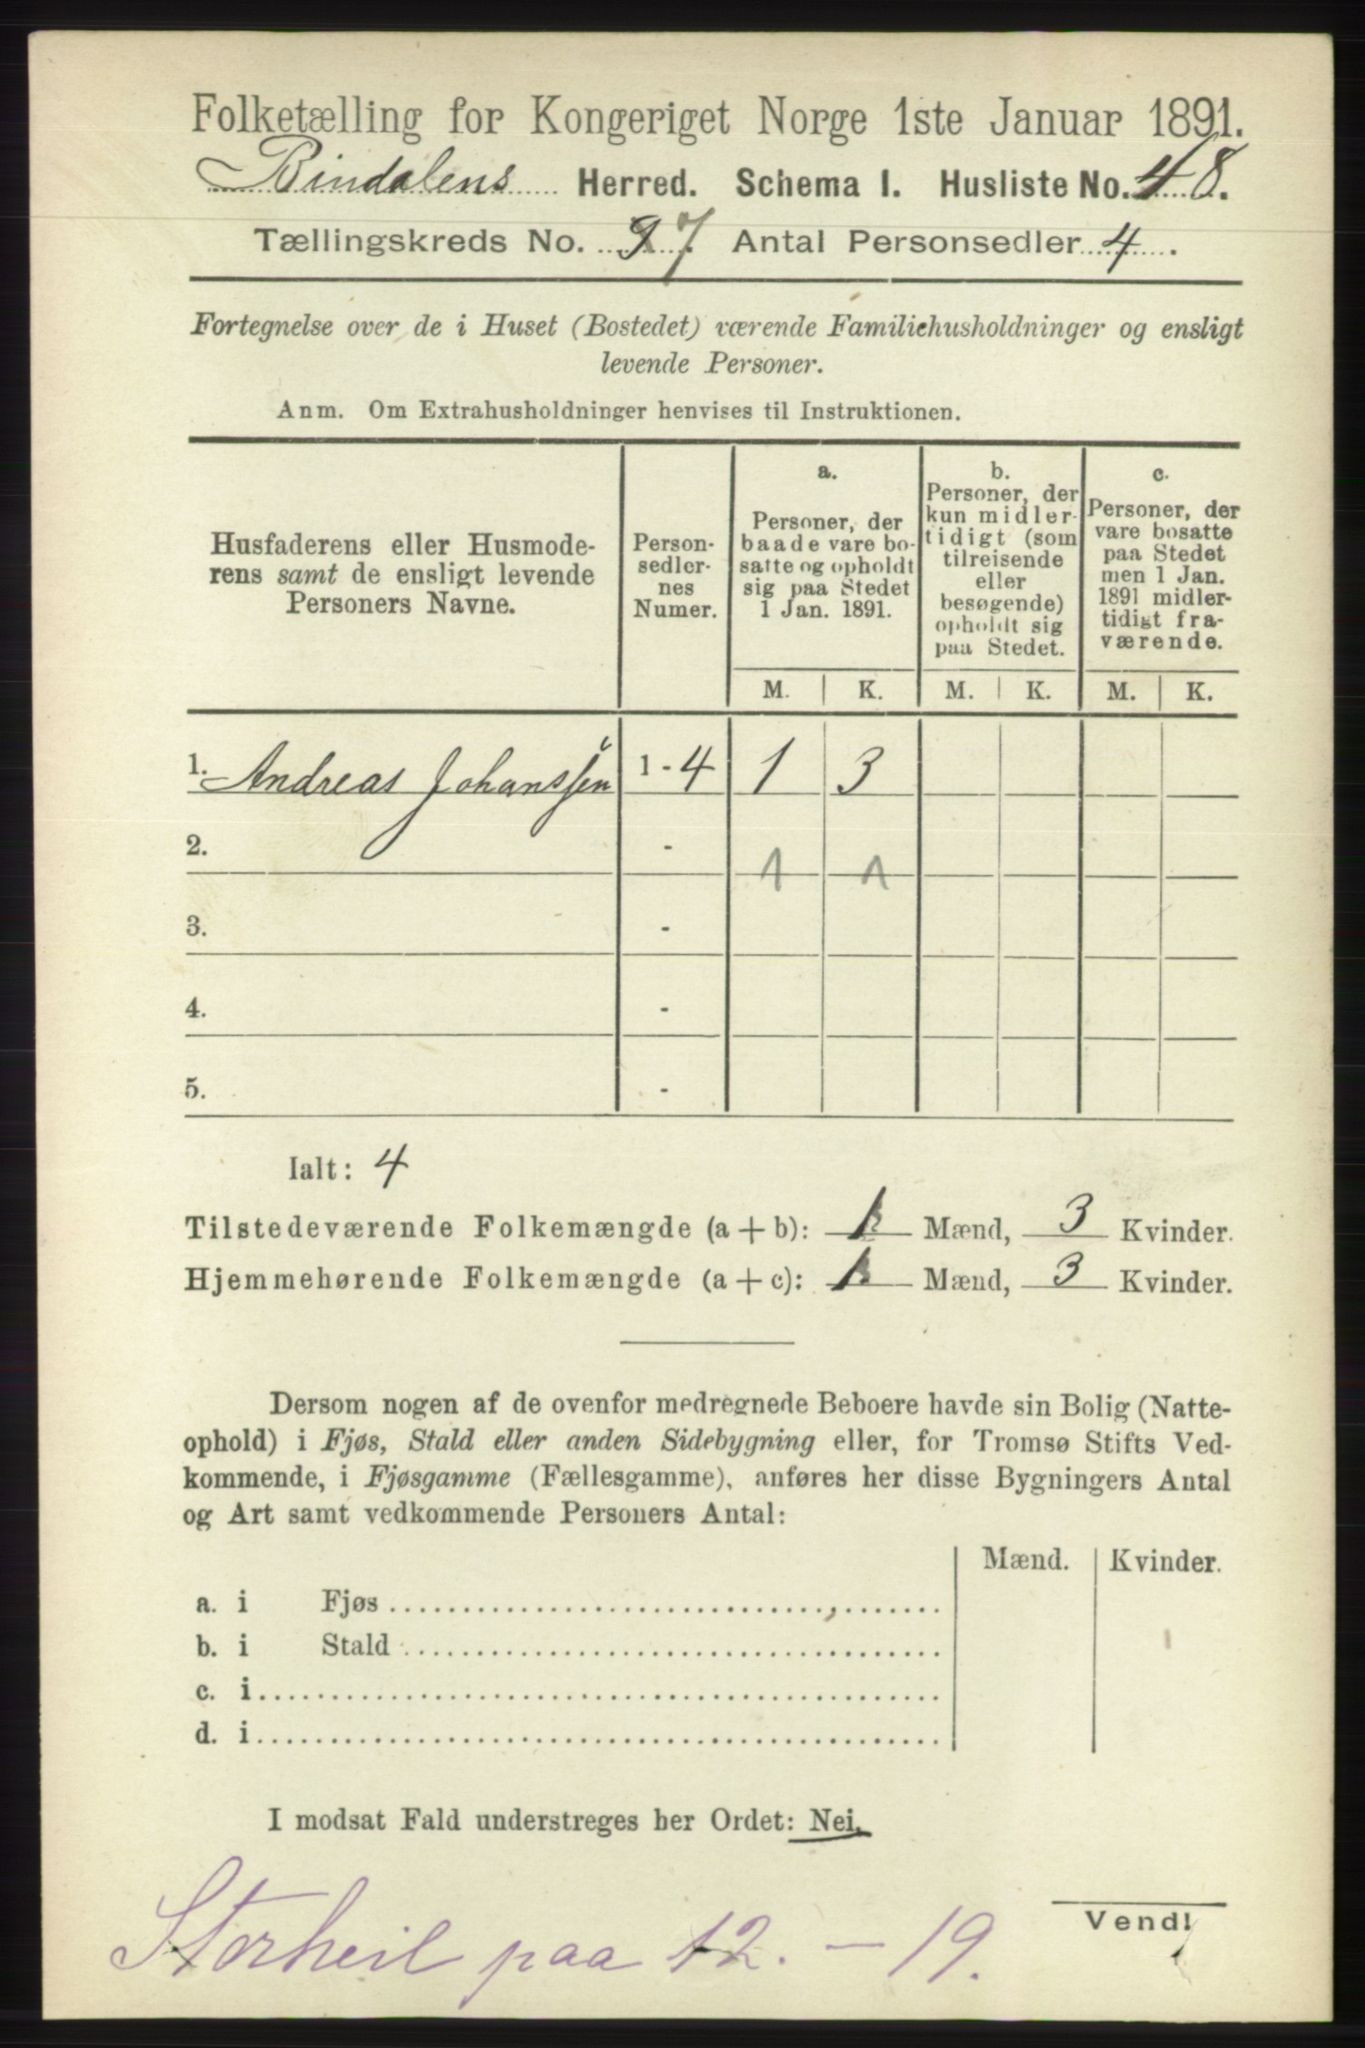 Folketælling for Kongeriget Norge 1ste Januar 1891.
Bindalens Herred. Schema I. Husliste No. 48.
Tællingskreds No. 7. Antal Personsedler 4.
Fortegnelse over de i Huset (Bostedet) værende Familiehusholdninger og ensligt
levende Personer.
Anm. Om Extrahusholdninger henvises til Instruktionen.
Husfaderens eller Husmode-
rens samt de ensligt levende
Personers Navne.
Person-
sedler-
nes
Numer.
a.
Personer, der
baade vare bo-
satte og opholdt
sig paa Stedet
1 Jan. 1891.
b.
Personer, der
kun midler-
tidigt (som
tilreisende
eller
besøgende)
opholdt sig
paa Stedet.
c.
Personer, der
vare bosatte
paa Stedet
men 1 Jan.
1891 midler-
tidigt fra-
værende.
M. K. M. K. M. K.
1. Andreas Johanssen 1 - 4 1 3
2. - 1 1
3. -
4. -
5. -
Ialt: 4
Tilstedeværende Folkemængde (a + b): 1 Mænd, 3 Kvinder.
Hjemmehørende Folkemængde (a + c): 1 Mænd, 3 Kvinder.
Dersom nogen af de ovenfor medregnede Beboere havde sin Bolig (Natte-
ophold) i Fjøs, Stald eller anden Sidebygning eller, for Tromsø Stifts Ved-
kommende, i Fjøsgamme (Fællesgamme), anføres her disse Bygningers Antal
og Art samt vedkommende Personers Antal:
Mænd. Kvinder.
a. i Fjøs
b. i Stald
c. i
d. i
I modsat Fald understreges her Ordet: Nei.
Storheil paa 12. - 19.
Vend!